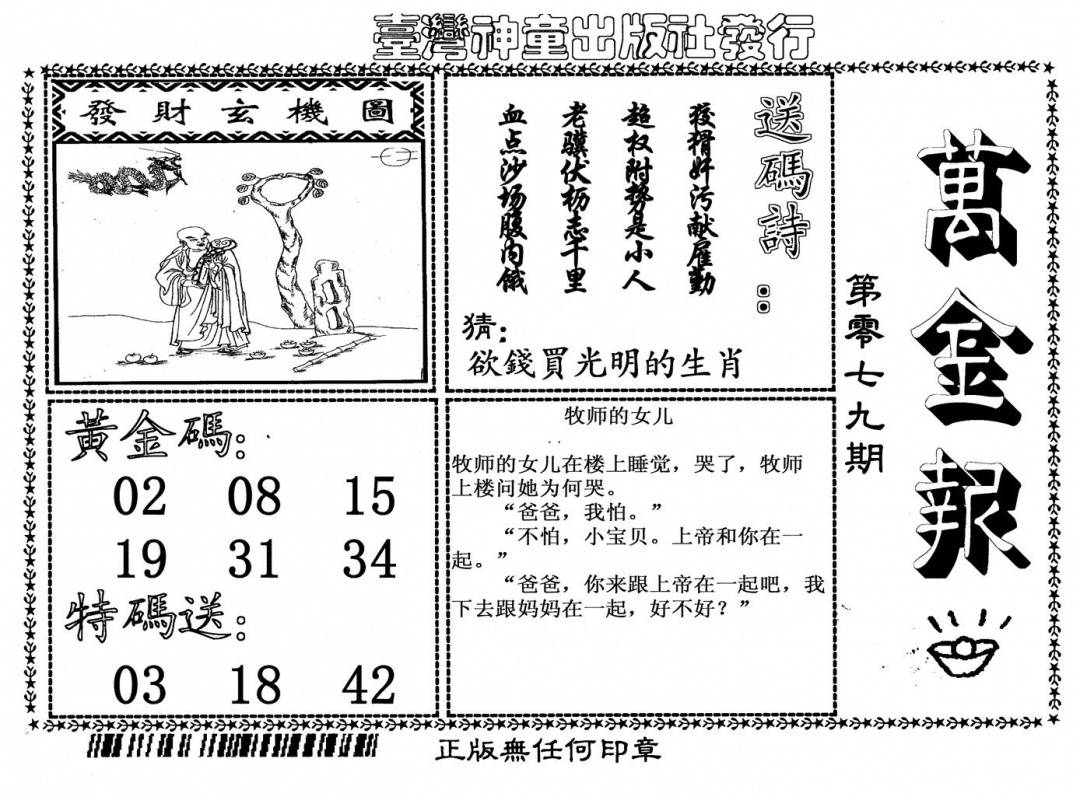 臺灣神童出版社發行
萬金報
第零七九期
發財玄機圖
送碼詩：
狡猾奸污献雇勤
超权附势是小人
老骥伏枥志千里
血点沙场腹内饿
猜：
欲錢買光明的生肖
黃金碼：
02 08 15
19 31 34
特碼送：
03 18 42
牧师的女儿
牧师的女儿在楼上睡觉，哭了，牧师
上楼问她为何哭。
“爸爸，我怕。”
“不怕，小宝贝。上帝和你在一
起。”
“爸爸，你来跟上帝在一起吧，我
下去跟妈妈在一起，好不好？”
正版無任何印章